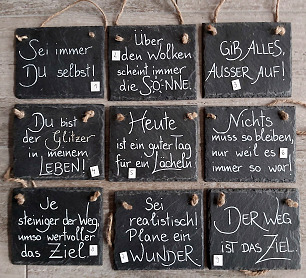 Sei immer
Du selbst!
1
Über
den Wolken
scheint immer
die SONNE.
2
GIB ALLES,
AUSSER AUF!
3
Du bist
der Glitzer
in meinem
LEBEN!
4
Heute
ist ein guter Tag
für ein Lächeln
5
Nichts
muss so bleiben,
nur weil es
immer so war!
6
Je
steiniger der Weg,
umso wertvoller
das Ziel
Sei
realistisch!
Plane ein
WUNDER
DER WEG
IST DAS ZIEL